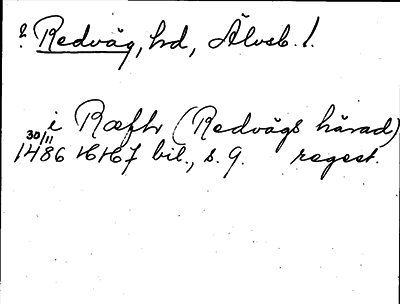 ? Redväg, hd, Älvsb. l.
i Ræfh (Redvägs härad)
30/11
1486 HH7 bil., s. 9. regest.